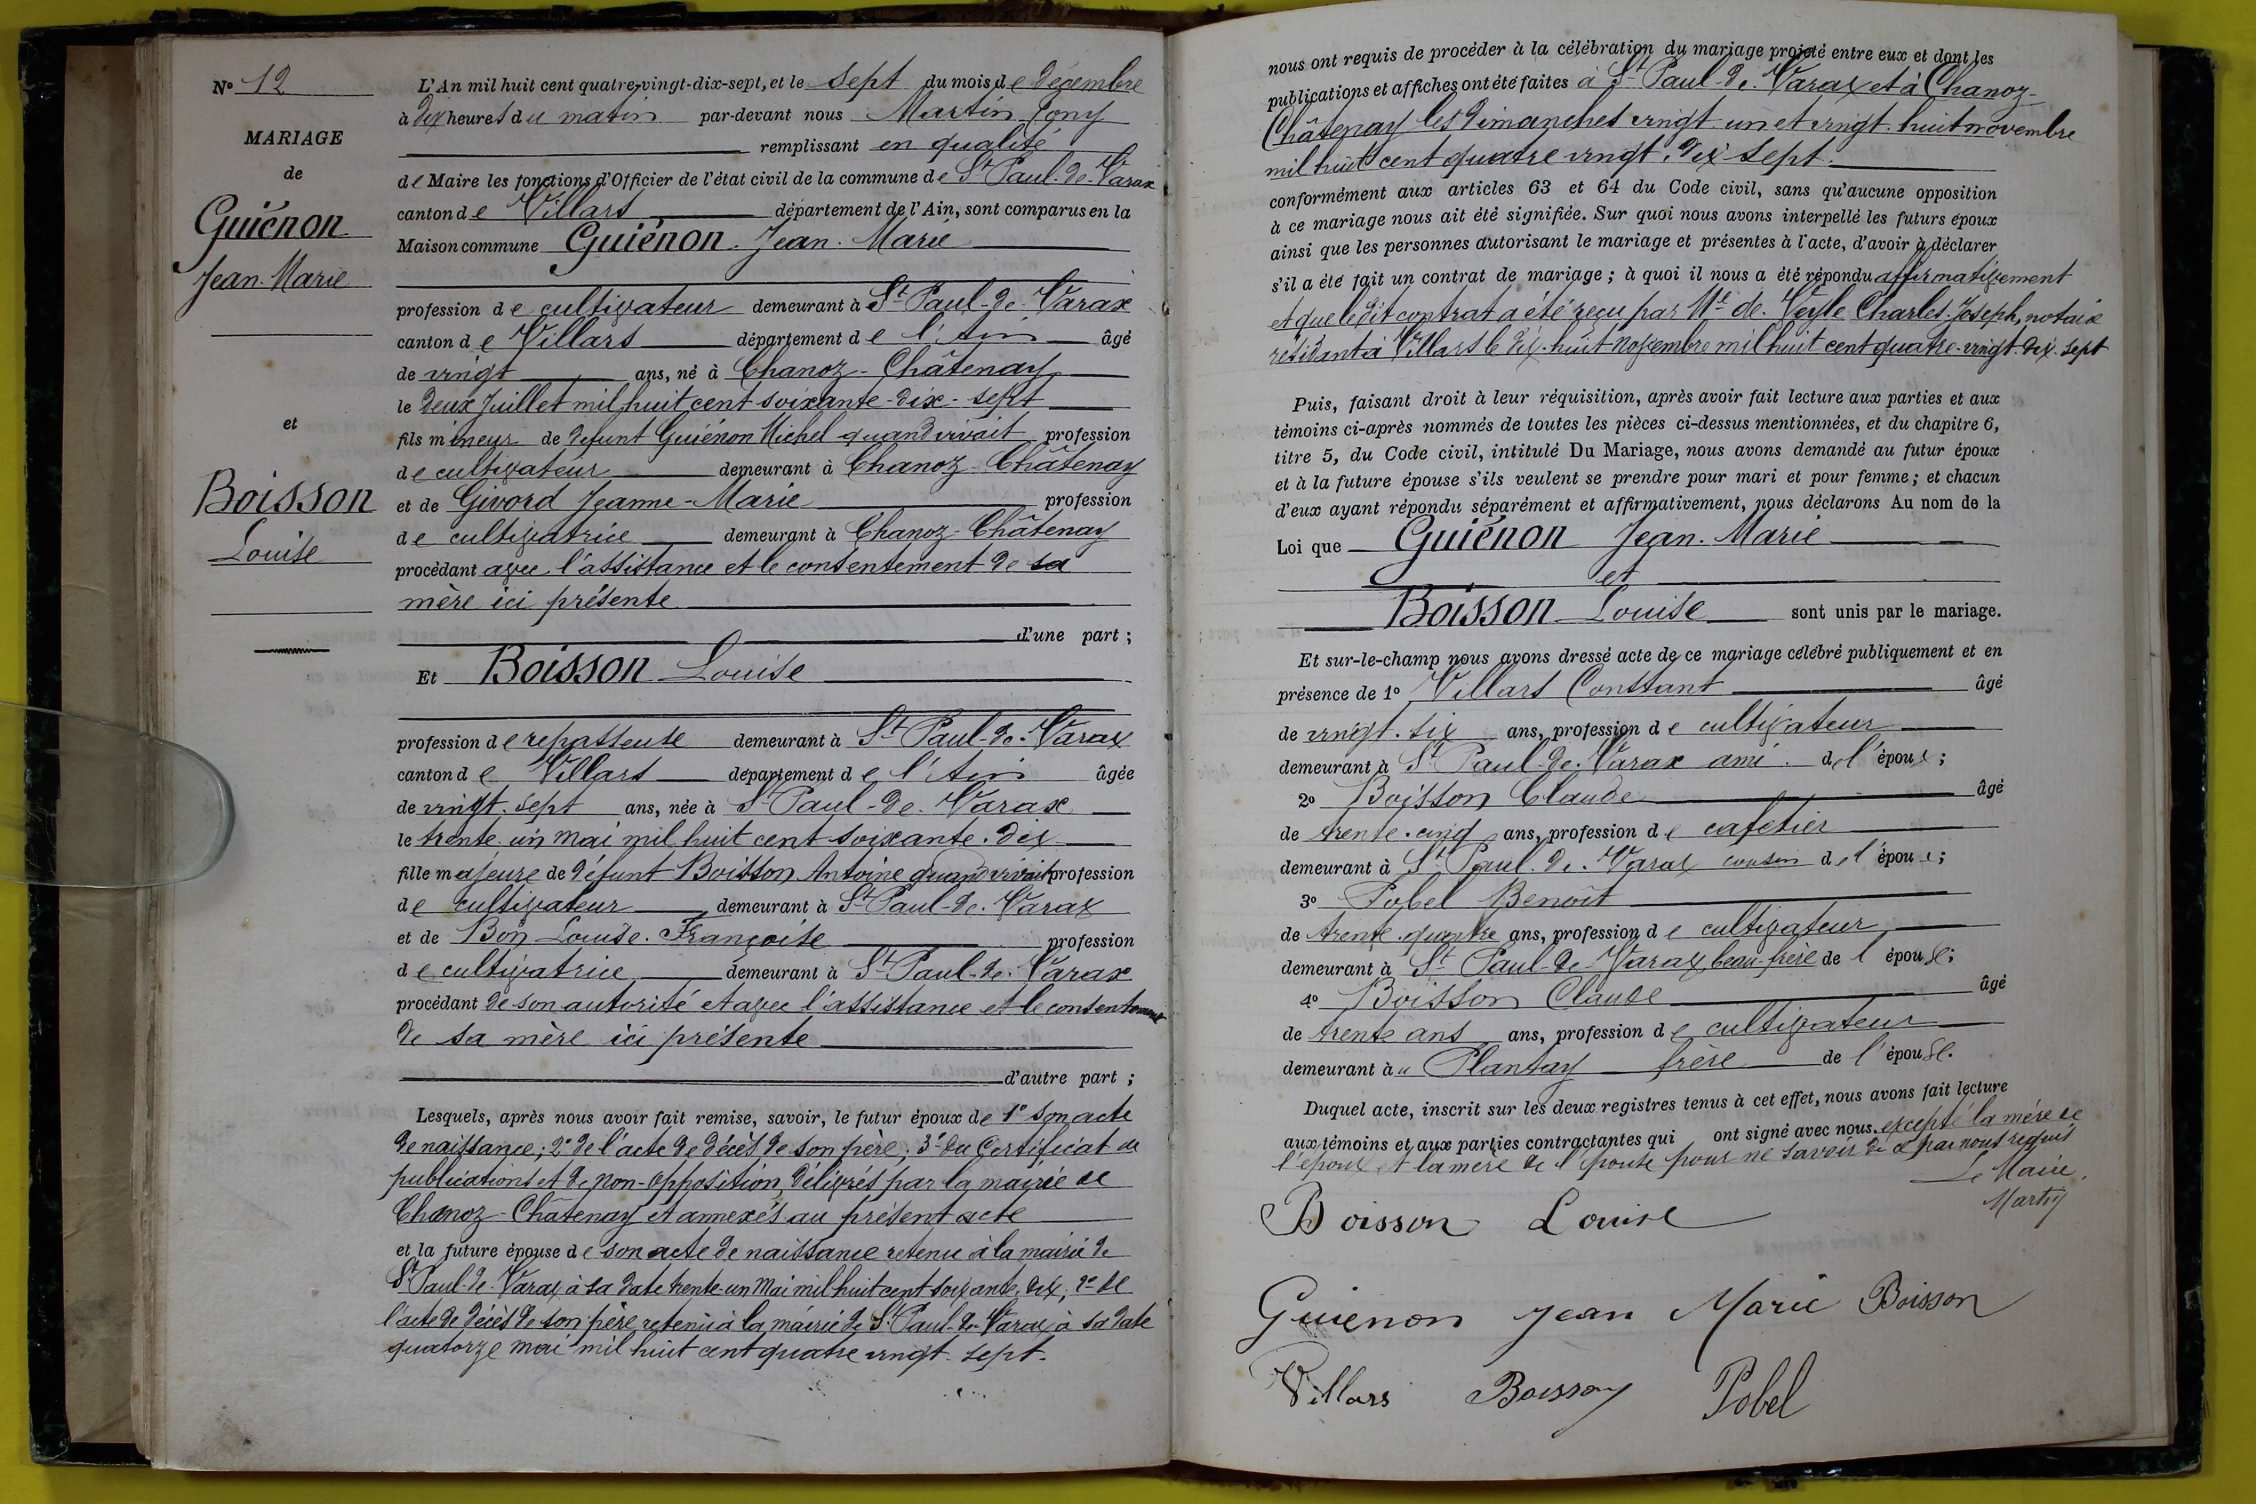 N° 12
MARIAGE
de
Guiénon
Jean-Marie
et
Boisson
Louise
L'An mil huit cent quatre-vingt-dix-sept, et le sept du mois de décembre
à dix heures du matin par-devant nous Martin Tony
remplissant en qualité
de Maire les fonctions d'Officier de l'état civil de la commune de St Paul-de-Varax
canton de Villars département de l'Ain, sont comparus en la
Maison commune Guiénon Jean-Marie
profession de cultivateur demeurant à St Paul-de-Varax
canton de Villars département de l'Ain âgé
de vingt ans, né à Chanoz-Châtenay
le deux Juillet mil huit cent soixante-dix-sept
fils mineur de défunt Guiénon Michel quand vivait profession
de cultivateur demeurant à Chanoz-Châtenay
et de Givord Jeanne-Marie profession
de cultivatrice demeurant à Chanoz-Châtenay
procédant avec l'assistance et le consentement de sa
mère ici présente
d'une part ;
Et Boisson Louise
profession de repasseuse demeurant à St Paul-de-Varax
canton de Villars département de l'Ain âgée
de vingt-sept ans, née à St Paul-de-Varax
le trente-un mai mil huit cent soixante-dix
fille majeure de défunt Boisson Antoine quand vivait profession
de cultivateur demeurant à St Paul-de-Varax
et de Bon Louise-Françoise profession
de cultivatrice demeurant à St Paul-de-Varax
procédant de son autorité et avec l'assistance et le consentement
de sa mère ici présente
d'autre part ;
Lesquels, après nous avoir fait remise, savoir, le futur époux de 1° son acte
de naissance; 2° de l'acte de décès de son père; 3° du certificat de
publications et de non-opposition, délivrés par la mairie de
Chanoz-Châtenay et annexés au présent acte
et la future épouse de son acte de naissance retenu à la mairie de
St Paul-de-Varax à sa date trente-un Mai mil huit cent soixante-dix; 2° de
l'acte de décès de son père retenu à la mairie de St Paul-de-Varax à sa date
quatorze mai mil huit cent quatre vingt-sept.
nous ont requis de procéder à la célébration du mariage projeté entre eux et dont les
publications et affiches ont été faites à St Paul-de-Varax et à Chanoz-
Châtenay les dimanches vingt-un et vingt-huit novembre
mil huit cent quatre vingt-dix sept.
conformément aux articles 63 et 64 du Code civil, sans qu'aucune opposition
à ce mariage nous ait été signifiée. Sur quoi nous avons interpellé les futurs époux
ainsi que les personnes autorisant le mariage et présentes à l'acte, d'avoir à déclarer
s'il a été fait un contrat de mariage ; à quoi il nous a été répondu affirmativement
et que ledit contrat a été reçu par Me de Veyle Charles-Joseph, notaire
résidant à Villars le dix-huit novembre mil huit cent quatre-vingt-dix-sept
Puis, faisant droit à leur réquisition, après avoir fait lecture aux parties et aux
témoins ci-après nommés de toutes les pièces ci-dessus mentionnées, et du chapitre 6,
titre 5, du Code civil, intitulé Du Mariage, nous avons demandé au futur époux
et à la future épouse s'ils veulent se prendre pour mari et pour femme ; et chacun
d'eux ayant répondu séparément et affirmativement, nous déclarons Au nom de la
Loi que Guiénon Jean-Marie
et
Boisson Louise sont unis par le mariage.
Et sur-le-champ nous avons dressé acte de ce mariage célébré publiquement et en
présence de 1° Villars Constant âgé
de vingt-six ans, profession de cultivateur
demeurant à St Paul-de-Varax ami de l'époux ;
2° Boisson Claude âgé
de trente-cinq ans, profession de cafetier
demeurant à St Paul-de-Varax cousin de l'épouse ;
3° Pobel Benoît
de trente-quatre ans, profession de cultivateur
demeurant à St Paul-de-Varax, beau-frère de l'épouse ;
4° Boisson Claude âgé
de trente ans ans, profession de cultivateur
demeurant au Plantay frère de l'épouse.
Duquel acte, inscrit sur les deux registres tenus à cet effet, nous avons fait lecture
aux témoins et aux parties contractantes qui ont signé avec nous, excepté la mère de
l'époux et la mère de l'épouse pour ne savoir de ce par nous requis
Le Maire,
Martin
Boisson Louise
Guienon Jean Marie Boisson
Villars Boisson Pobel